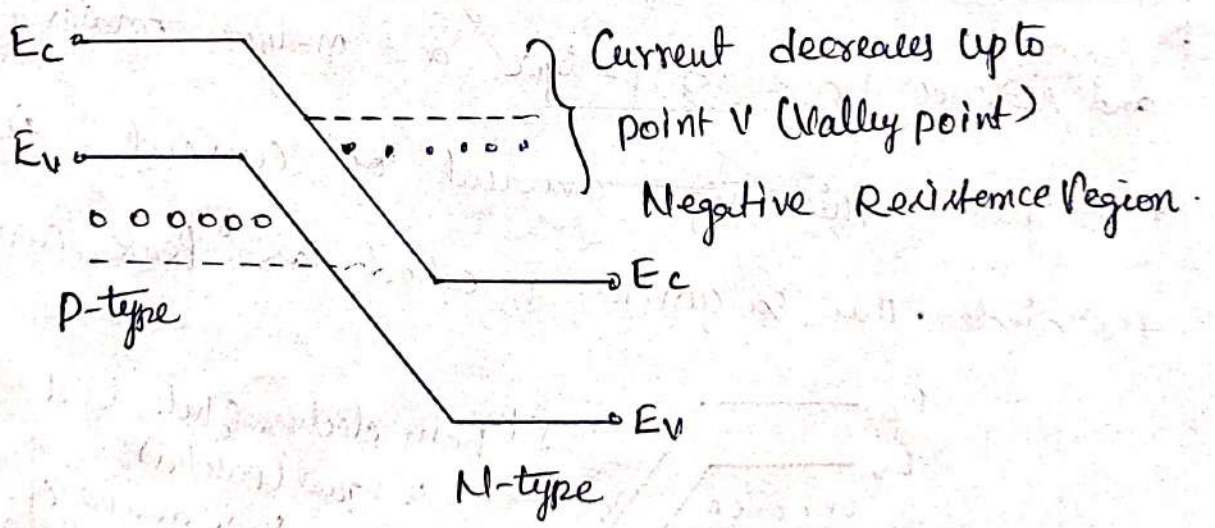 Ec
Current decreases upto
point V (Valley point)
Ev
Negative Resistence Region.
Ec
P-type
Ev
N-type